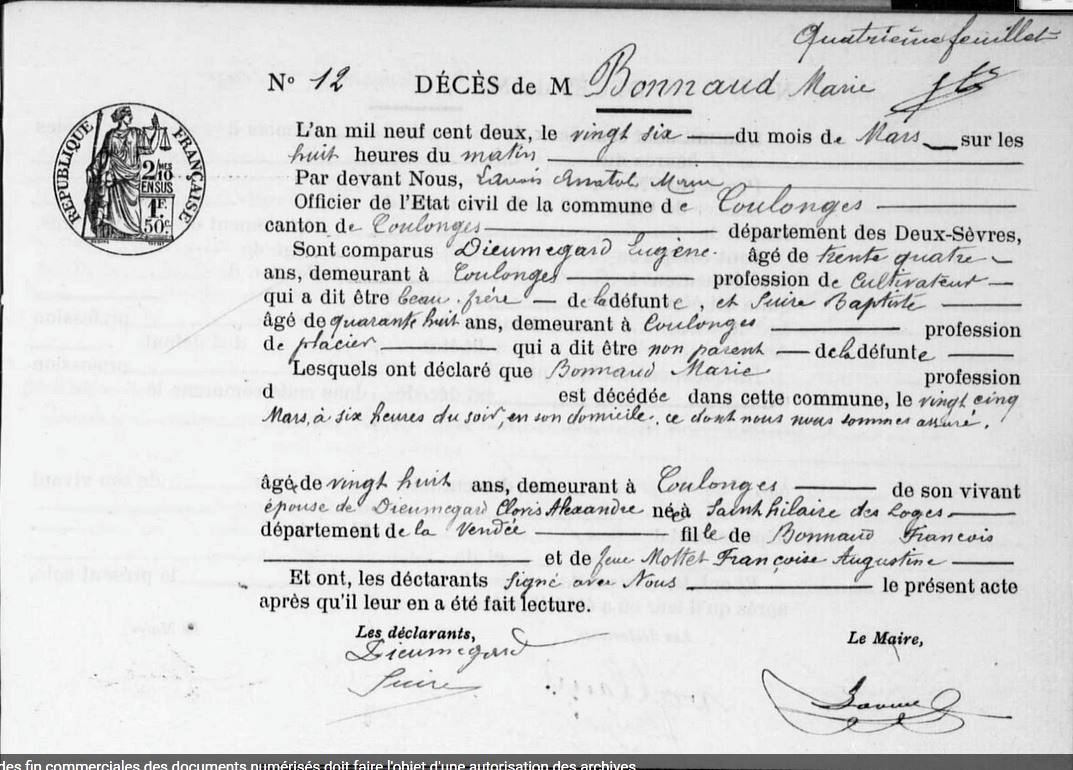 Quatrième feuillet
N° 12 DÉCÈS de M Bonnaud Marie
RÉPUBLIQUE FRANÇAISE
2/10
EN SUS
1F.
50c
L'an mil neuf cent deux, le vingt six du mois de Mars sur les
huit heures du matin
Par devant Nous, Anatole
Officier de l'Etat civil de la commune de Coulonges
canton de Coulonges département des Deux-Sèvres,
Sont comparus Dieumegard Eugène âgé de trente quatre
ans, demeurant à Coulonges profession de Cultivateur
qui a dit être beau-frère de la défunte et Suire Baptiste
âgé de quarante huit ans, demeurant à Coulonges profession
de placier qui a dit être non parent de la défunte
Lesquels ont déclaré que Bonnaud Marie profession
d est décédée dans cette commune, le vingt cinq
Mars, à six heures du soir, en son domicile. ce dont nous nous sommes assuré.
âgée de vingt huit ans, demeurant à Coulonges de son vivant
épouse de Dieumegard Cloris Alexandre née à Saint hilaire des Loges
département de la Vendée fille de Bonnaud Francois
et de feue Mottet Françoise Augustine
Et ont, les déclarants signé avec Nous le présent acte
après qu'il leur en a été fait lecture.
Les déclarants, Le Maire,
Dieumegard
Suire
des fin commerciales des documents numérisés doit faire l'objet d'une autorisation des archives